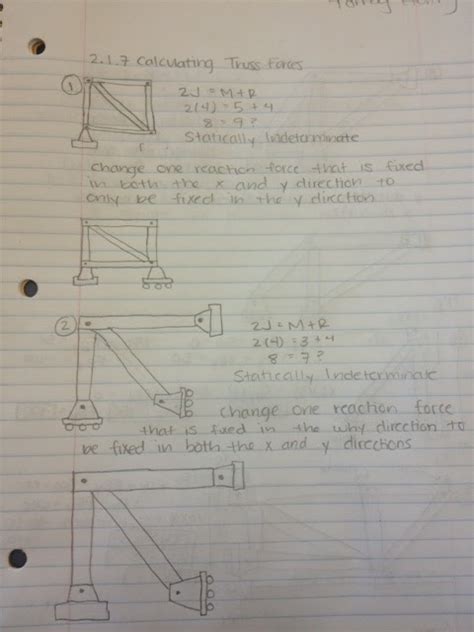 2.1.7 Calculating Truss forces
1
2J = M+R
2(4) = 5 + 4
8 = 9 ?
Statically Indeterminate
change one reaction force that is fixed
in both the x and y direction to
only be fixed in the y direction
2
2J = M+R
2(4) = 3 + 4
8 = 7 ?
Statically Indeterminate
change one reaction force
that is fixed in the why direction to
be fixed in both the x and y directions